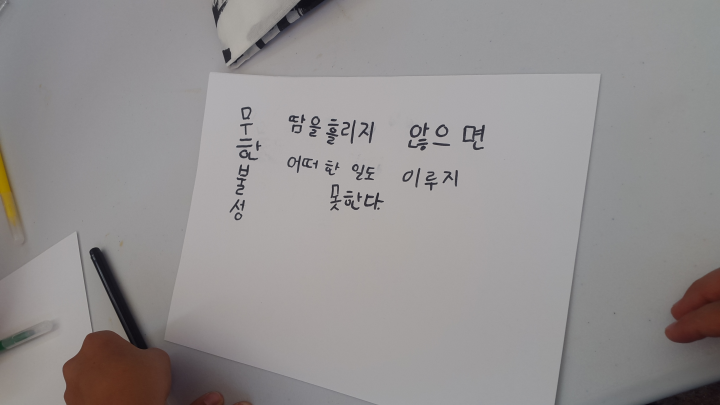 무한불성
땀을흘리지 않으면
어떠한 일도 이루지
못한다.